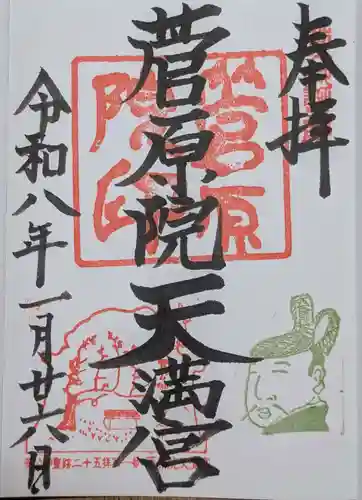 奉拝
菅原院天満宮
令和八年一月廿六日
菅原
院